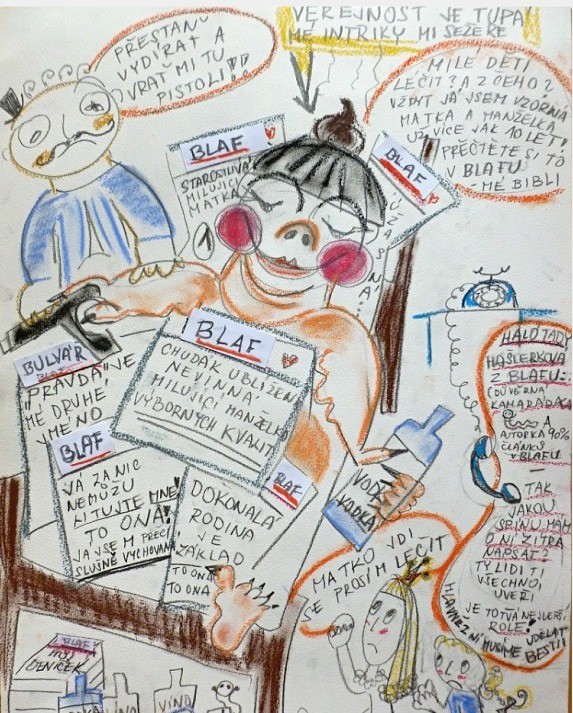 VEŘEJNOST JE TUPÁ
MÉ INTRIKY MI SEŽERE
PŘESTAŇ
VYDÍRAT A
VRAŤ MI TU
PISTOLI!!
MILÉ DĚTI
LÉČIT? A Z ČEHO?
VŽDYŤ JÁ JSEM VZORNÁ
MATKA A MANŽELKA
UŽ VÍCE JAK 10 LET!
PŘEČTĚTE SI TO
V BLAFU
MÉ BIBLI
BLAF
STAROSTLIVÁ
MILUJÍCÍ
MATKA
BLAF
ÚŽASNÁ!
BLAF
CHUDÁK UBLÍŽENÁ
NEVINNÁ
MILUJÍCÍ MANŽELKA
VÝBORNÝCH KVALIT
BULVÁR
PRAVDA JE
MÉ DRUHÉ
JMÉNO
BLAF
JÁ ZA NIC
NEMŮŽU
LITUJTE MNE!
TO ONA!
JÁ JSEM PŘECI
SLUŠNĚ VYCHOVANÁ
BLAF
DOKONALÁ
RODINA
JE
ZÁKLAD
TO ONA
TO ONA
VODA
VODKA
HALO TADY
HAŠLERKOVÁ
Z BLAFU
DŮVĚRNÁ
KAMARÁDKA
A
AUTORKA 90%
ČLÁNKŮ
V BLAFU
TAK
JAKOU
ŠPÍNU MÁM
O NÍ ZÍTRA
NAPSAT?
TY LIDI TI
VŠECHNO
UVĚŘÍ
JE TO TVÁ NEJLEPŠÍ
ROLE!
MATKO JDI
SE PROSÍM LÉČIT
HLAVNĚ Z NÍ MUSÍME UDĚLAT
BESTII
BLAF
MŮJ
DENÍČEK
VÍNO
VÍNO